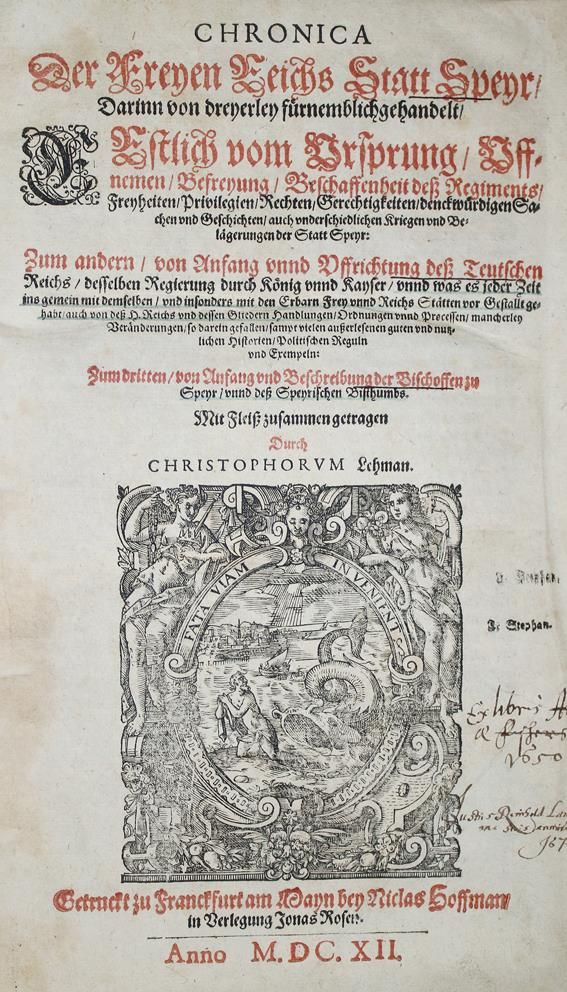 CHRONICA
Der Freyen Reichs Statt Speyr/
Darinn von dreyerley fürnemblich gehandelt/
Erstlich vom Vrsprung/ Vff-
nemen/ Befreyung/ Beschaffenheit deß Regiments/
Freyheiten/ Privilegien/ Rechten/ Gerechtigkeiten/ denckwürdigen Sa-
chen vnd Geschichten/ auch vnderschiedlichen Kriegen vnd Be-
lägerungen der Statt Speyr:
Zum andern/ von Anfang vnnd Vffrichtung deß Teutschen
Reichs/ desselben Regierung durch König vnnd Kayser/ vnnd was es jeder Zeit
ins gemein mit demselben/ vnd insonders mit den Erbarn Frey vnnd Reichs Stätten vor Gestallt ge-
habt/ auch von deß H. Reichs vnd dessen Gliedern Handlungen/ Ordnungen vnnd Processen/ mancherley
Veränderungen/ so darein gefallen/ sampt vielen außerlesenen guten vnd nutz-
lichen Historien/ Politischen Reguln
vnd Exempeln:
Zum dritten/ von Anfang vnd Beschreibung der Bischoffen zu
Speyr/ vnnd deß Speyrischen Bisthumbs.
Mit Fleiß zusammen getragen
Durch
CHRISTOPHORVM Lehman.
FATA VIAM INVENIENT
J. Stephan.
J. Stephan.
Ex libris
1650
Getruckt zu Franckfurt am Mayn bey Niclas Hoffman/
in Verlegung Jonas Rosen.
Anno M.DC.XII.